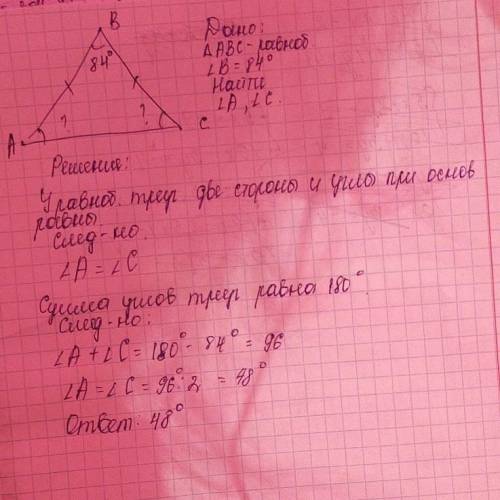 B
84°
A
?
?
C
Дано:
ΔABC - равноб
∠B = 84°
Найти
∠A, ∠C.
Решение:
У равноб. треуг две стороны и углы при основ
равны.
След-но.
∠A = ∠C
Сумма углов треуг равна 180°.
След-но:
∠A + ∠C = 180° - 84° = 96
∠A = ∠C = 96° : 2 = 48°
Ответ: 48°